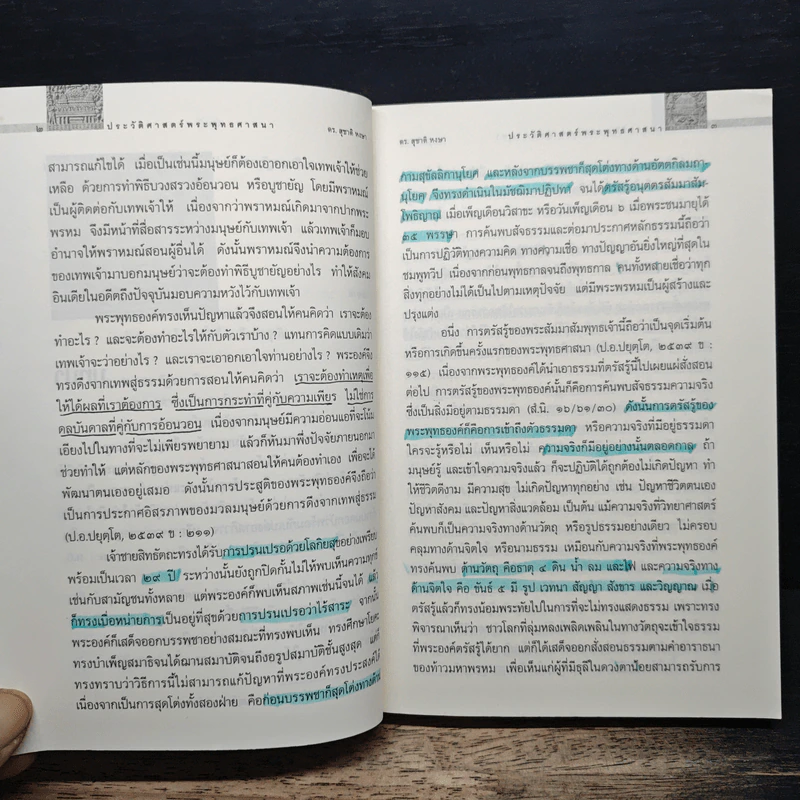 ๒ ประวัติศาสตร์พระพุทธศาสนา ดร. สุชาติ หงษา
สามารถแก้ไขได้ เมื่อเป็นเช่นนี้มนุษย์ก็ต้องเอาอกเอาใจเทพเจ้าให้ช่วย
เหลือ ด้วยการทำพิธีบวงสรวงอ้อนวอน หรือบูชายัญ โดยมีพราหมณ์
เป็นผู้ติดต่อกับเทพเจ้าให้ เนื่องจากว่าพราหมณ์เกิดมาจากปากพระ
พรหม จึงมีหน้าที่สื่อสารระหว่างมนุษย์กับเทพเจ้า แล้วเทพเจ้าก็มอบ
อำนาจให้พราหมณ์สอนผู้อื่นได้ ดังนั้นพราหมณ์จึงนำความต้องการ
ของเทพเจ้ามาบอกมนุษย์ว่าจะต้องทำพิธีบูชายัญอย่างไร ทำให้สังคม
อินเดียในอดีตถึงปัจจุบันมอบความหวังไว้กับเทพเจ้า
พระพุทธองค์ทรงเห็นปัญหาแล้วจึงสอนให้คนคิดว่า เราจะต้อง
ทำอะไร ? และจะต้องทำอะไรให้กับตัวเราบ้าง ? แทนการคิดแบบเดิมว่า
เทพเจ้าจะว่าอย่างไร ? และเราจะเอาอกเอาใจท่านอย่างไร ? พระองค์จึง
ทรงดึงจากเทพสู่ธรรมด้วยการสอนให้คนคิดว่า เราจะต้องทำเหตุเพื่อ
ให้ได้ผลที่เราต้องการ ซึ่งเป็นการกระทำที่คู่กับความเพียร ไม่ใช่การ
ดลบันดาลที่คู่กับการอ้อนวอน เนื่องจากมนุษย์มีความอ่อนแอที่จะโน้ม
เอียงไปในทางที่จะไม่เพียรพยายาม แล้วก็หันมาพึ่งปัจจัยภายนอกมา
ช่วยทำให้ แต่หลักของพระพุทธศาสนาสอนให้คนต้องทำเอง เพื่อจะได้
พัฒนาตนเองอยู่เสมอ ดังนั้นการประสูติของพระพุทธองค์จึงถือว่า
เป็นการประกาศอิสรภาพของมวลมนุษย์ด้วยการดึงจากเทพสู่ธรรม
(ป.อ.ปยุตฺโต, ๒๕๓๙ ข : ๒๑๑)
เจ้าชายสิทธัตถะทรงได้รับการปรนเปรอด้วยโลกิยสุขอย่างเพรียบ
พร้อมเป็นเวลา ๒๙ ปี ระหว่างนั้นยังถูกปิดกั้นไม่ให้พบเห็นความทุกข์
เช่นกับสามัญชนทั้งหลาย แต่พระองค์ก็พบเห็นสภาพเช่นนี้จนได้ แล้ว
ก็ทรงเบื่อหน่ายการเป็นอยู่ที่สุขด้วยการปรนเปรอว่าไร้สาระ จากนั้น
พระองค์ก็เสด็จออกบรรพชาอย่างสมณะที่ทรงพบเห็น ทรงศึกษาโยคะ
ทรงบำเพ็ญสมาธิจนได้ฌานสมาบัติจนถึงอรูปสมาบัติชั้นสูงสุด แต่ก็
ทรงทราบว่าวิธีการนี้ไม่สามารถแก้ปัญหาที่พระองค์ทรงประสงค์ได้
เนื่องจากเป็นการสุดโต่งทั้งสองฝ่าย คือก่อนบรรพชาก็สุดโต่งทางด้าน
ดร. สุชาติ หงษา ประวัติศาสตร์พระพุทธศาสนา ๓
กามสุขัลลิกานุโยค และหลังจากบรรพชาก็สุดโต่งทางด้านอัตตกิลมถา-
นุโยค จึงทรงดำเนินในมัชฌิมาปฏิปทา จนได้ตรัสรู้อนุตตรสัมมาสัม-
โพธิญาณ เมื่อเพ็ญเดือนวิสาขะ หรือวันเพ็ญเดือน ๖ เมื่อพระชนมายุได้
๓๕ พรรษา การค้นพบสัจธรรมและต่อมาประกาศหลักธรรมนี้ถือว่า
เป็นการปฏิวัติทางความคิด ทางความเชื่อ ทางปัญญาอันยิ่งใหญ่ที่สุดใน
ชมพูทวีป เนื่องจากก่อนพุทธกาลจนถึงพุทธกาล คนทั้งหลายเชื่อว่าทุก
สิ่งทุกอย่างไม่ได้เป็นไปตามเหตุปัจจัย แต่มีพระพรหมเป็นผู้สร้างและ
ปรุงแต่ง
อนึ่ง การตรัสรู้ของพระสัมมาสัมพุทธเจ้านี้ถือว่าเป็นจุดเริ่มต้น
หรือการเกิดขึ้นครั้งแรกของพระพุทธศาสนา (ป.อ.ปยุตฺโต, ๒๕๓๙ ข :
๑๑๕) เนื่องจากพระพุทธองค์ได้นำเอาธรรมที่ตรัสรู้นี้ไปเผยแผ่สั่งสอน
ต่อไป การตรัสรู้ของพระพุทธองค์นั้นก็คือการค้นพบสัจธรรมความจริง
ซึ่งเป็นสิ่งมีอยู่ตามธรรมดา (สํ.นิ. ๑๖/๖๑/๓๐) ดังนั้นการตรัสรู้ของ
พระพุทธองค์ก็คือการเข้าถึงตัวธรรมดา หรือความจริงที่มีอยู่ธรรมดา
ใครจะรู้หรือไม่ เห็นหรือไม่ ความจริงก็มีอยู่อย่างนั้นตลอดกาล ถ้า
มนุษย์รู้ และเข้าใจความจริงแล้ว ก็จะปฏิบัติได้ถูกต้องไม่เกิดปัญหา ทำ
ให้ชีวิตดีงาม มีความสุข ไม่เกิดปัญหาทุกอย่าง เช่น ปัญหาชีวิตตนเอง
ปัญหาสังคม และปัญหาสิ่งแวดล้อม เป็นต้น แม้ความจริงที่วิทยาศาสตร์
ค้นพบก็เป็นความจริงทางด้านวัตถุ หรือรูปธรรมอย่างเดียว ไม่ครอบ
คลุมทางด้านจิตใจ หรือนามธรรม เหมือนกับความจริงที่พระพุทธองค์
ทรงค้นพบ ด้านวัตถุ คือธาตุ ๔ ดิน น้ำ ลม และไฟ และความจริงทาง
ด้านจิตใจ คือ ขันธ์ ๕ มี รูป เวทนา สัญญา สังขาร และวิญญาณ เมื่อ
ตรัสรู้แล้วก็ทรงน้อมพระทัยไปในการที่จะไม่ทรงแสดงธรรม เพราะทรง
พิจารณาเห็นว่า ชาวโลกที่ลุ่มหลงเพลิดเพลินในทางวัตถุจะเข้าใจธรรม
ที่พระองค์ตรัสรู้ได้ยาก แต่ก็ได้เสด็จออกสั่งสอนธรรมตามคำอาราธนา
ของท้าวมหาพรหม เพื่อเห็นแก่ผู้ที่มีธุลีในดวงตาน้อยสามารถรับการ